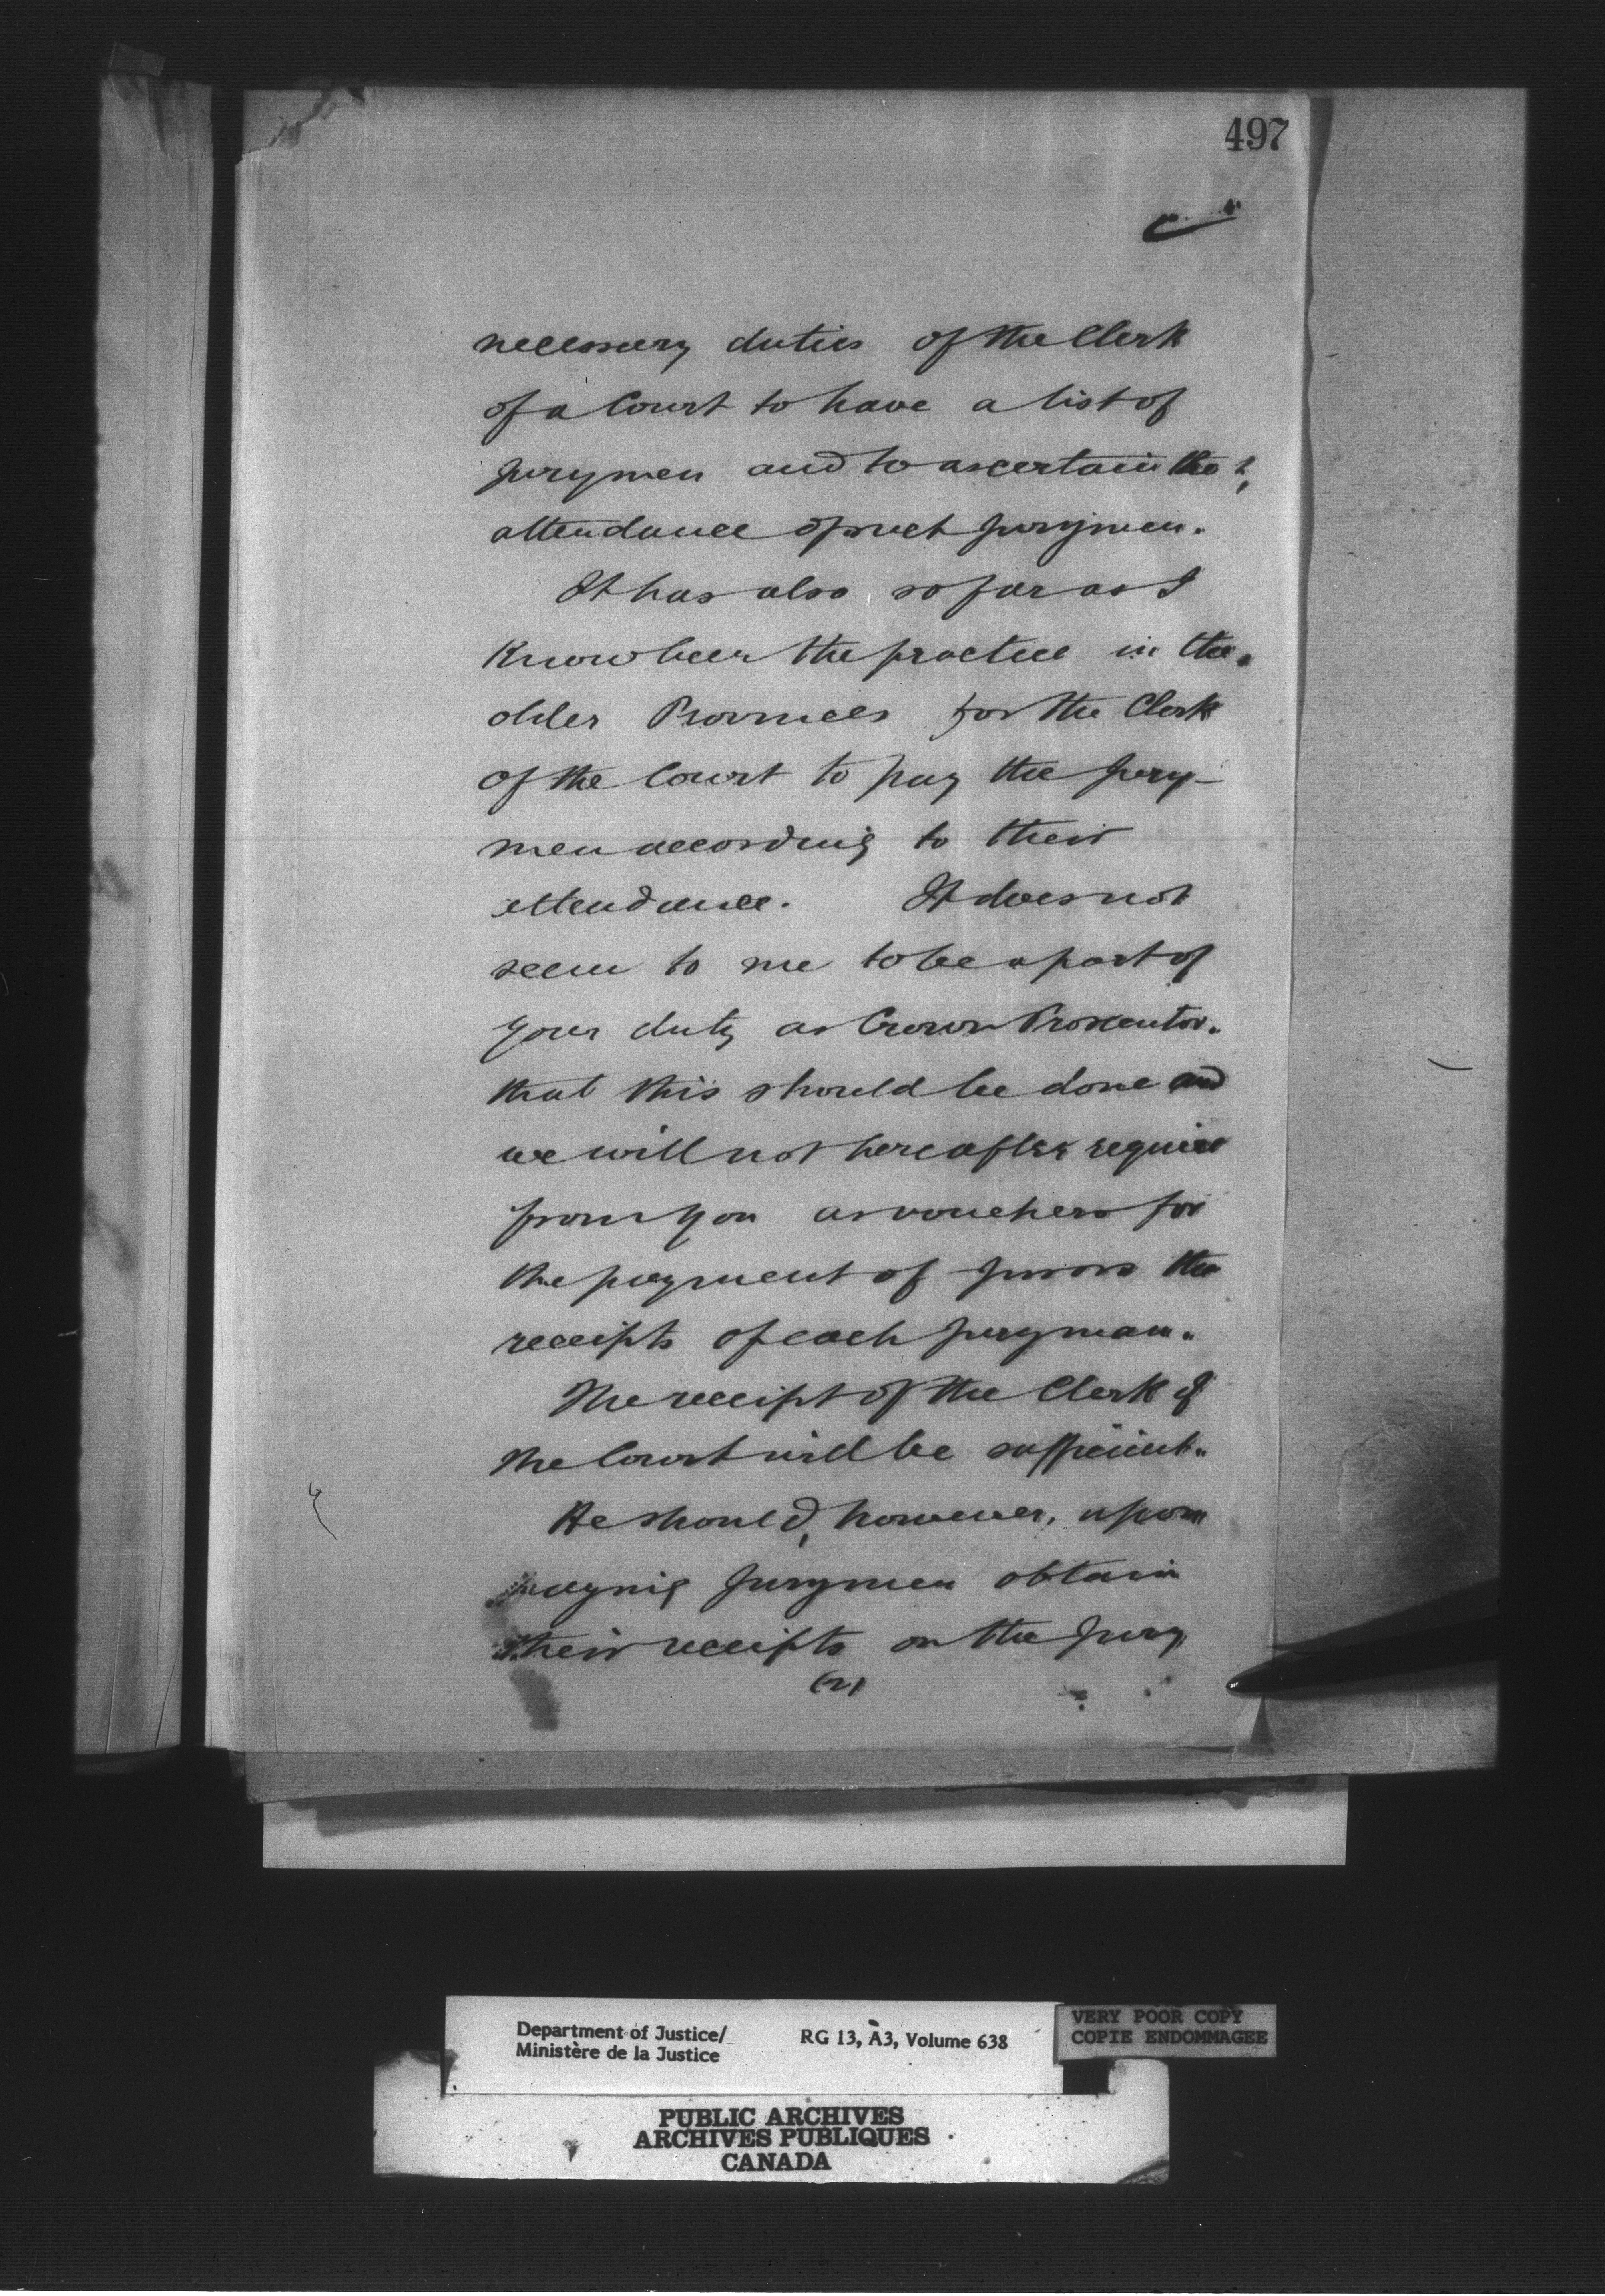 497
necessary duties of the Clerk
of a Court to have a list of
Jurymen and to ascertain the
attendance of such Jurymen.
It has also so far as I
Know been the practice in the
older Provinces for the Clerk
of the Court to pay the Jury-
men according to their
attendance. It does not
seem to me to be a part of
your duty as Crown Prosecutor.
that this should be done and
we will not hereafter require
from you as vouchers for
the payment of Jurors the
receipts of each Juryman.
The receipt of the Clerk of
the Court will be sufficient.
He should, however, upon
paying Jurymen obtain
their receipts on the Jury
(2)
Department of Justice/
Ministère de la Justice
RG 13, A3, Volume 638
VERY POOR COPY
COPIE ENDOMMAGEE
PUBLIC ARCHIVES
ARCHIVES PUBLIQUES
CANADA